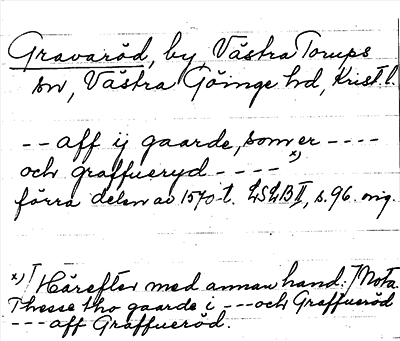 Gravaröd, by, Västra Torups
sn, Västra Göinge hd, Krist. l.
-- aff ij gaarde, som er ----
och graffueryd ----- x)
förra delen av 1570-t. LSLB II, s. 96. orig.
x) / Härefter med annan hand: / Nota.
Thesse tho gaarde i --- och Graffueröd
--- aff Graffueröd.